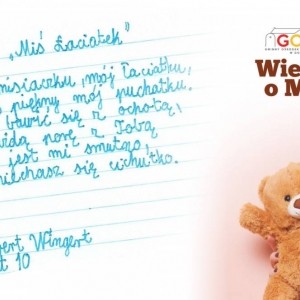 „Miś Łaciatek"
misiaczku, mój Łaciatku,
piękny mój puchatku.
bawić się z ochotą,
porę z Tobą
jest mi smutno,
się cichutko.
Wingert
10
GO
Wie
o M